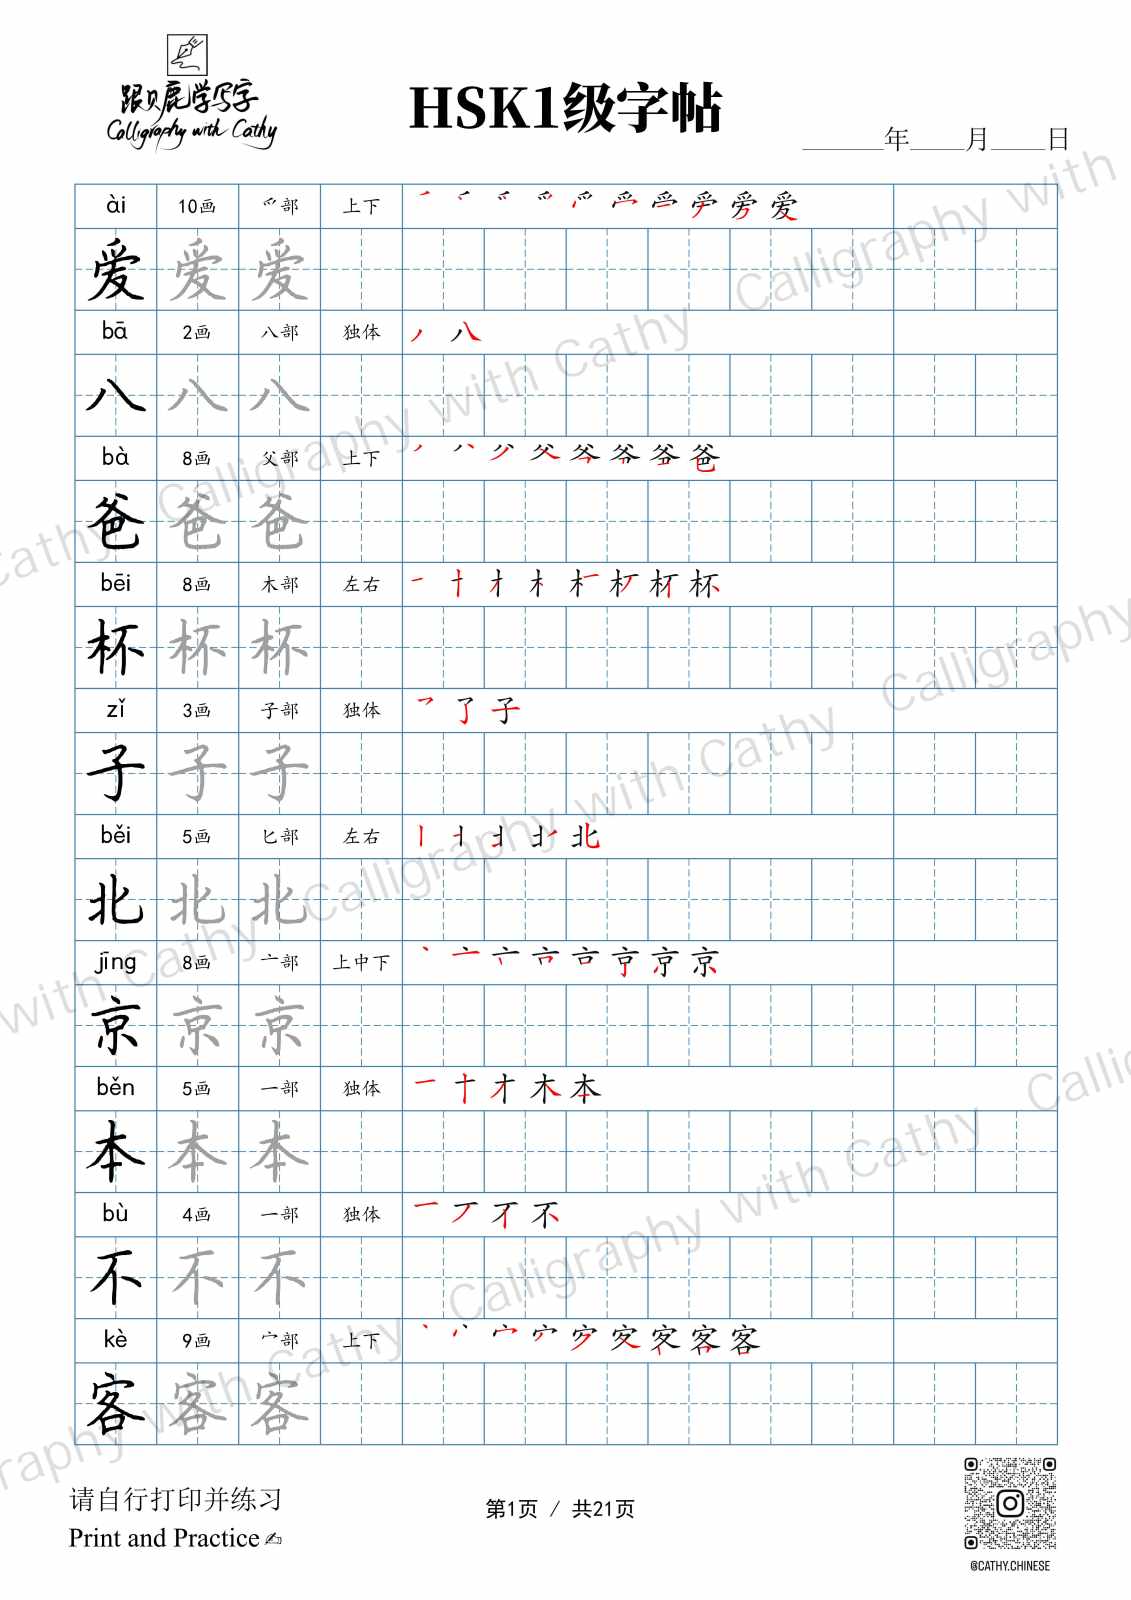 跟贝鹿学写字
Calligraphy with Cathy
HSK1级字帖
______年____月____日
ài 10画 爫部 上下
爱 爱 爱
bā 2画 八部 独体 丿 八
八 八 八
bà 8画 父部 上下
爸 爸 爸
bēi 8画 木部 左右
杯 杯 杯
zǐ 3画 子部 独体 乛 了 子
子 子 子
běi 5画 匕部 左右
北 北 北
jīng 8画 亠部 上中下
京 京 京
běn 5画 一部 独体 一 十 才 木 本
本 本 本
bù 4画 一部 独体
不 不 不
kè 9画 宀部 上下
客 客 客
请自行打印并练习
Print and Practice✍
第1页 / 共21页
@CATHY.CHINESE
Calligraphy with Cathy